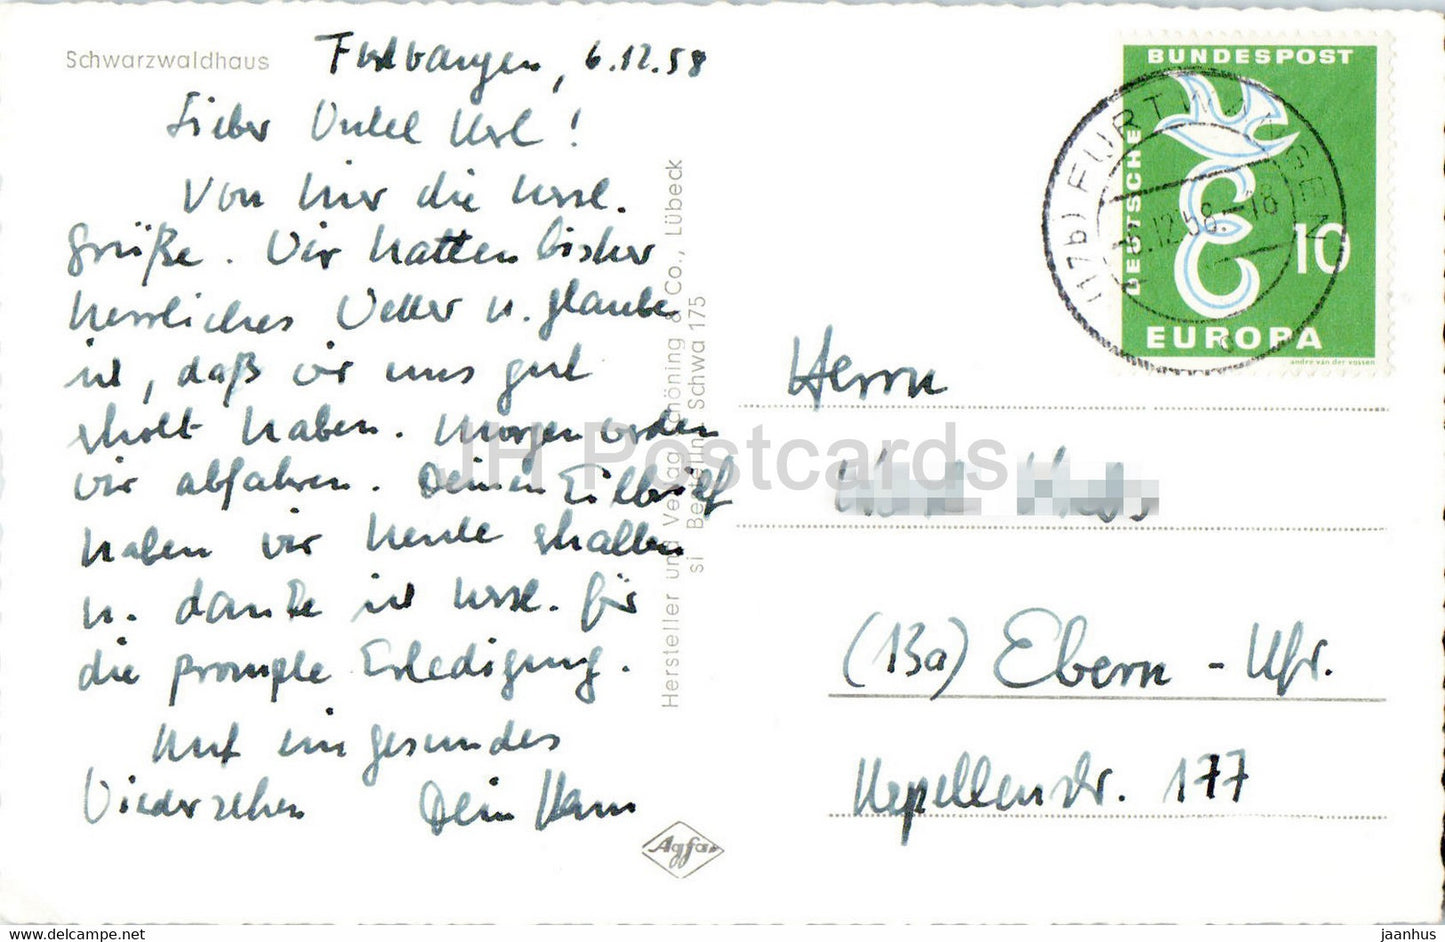 Schwarzwaldhaus
Furtwangen, 6.12.58
Lieber Onkel Karl!
Von hier die herzl.
Grüße. Wir hatten bisher
herrliches Wetter u. glaube
ich, daß wir uns gut
erholt haben. Morgen werden
wir abfahren. Deinen Eilbrief
haben wir heute erhalten
u. danke ich herzl. für
die prompte Erledigung.
Auf ein gesundes
Wiedersehen Dein Hans
Hersteller und Verlag Schöning & Co., Lübeck
si Bestelln Schwa 175
Agfa
BUNDESPOST
DEUTSCHE
10
EUROPA
andre van der vossen
(17b) FURTWANGEN
.12.58.-18
Herrn
(13a) Ebern - Ufr.
Kapellenstr. 177
JH Postcards
www.delcampe.net
jaanhus